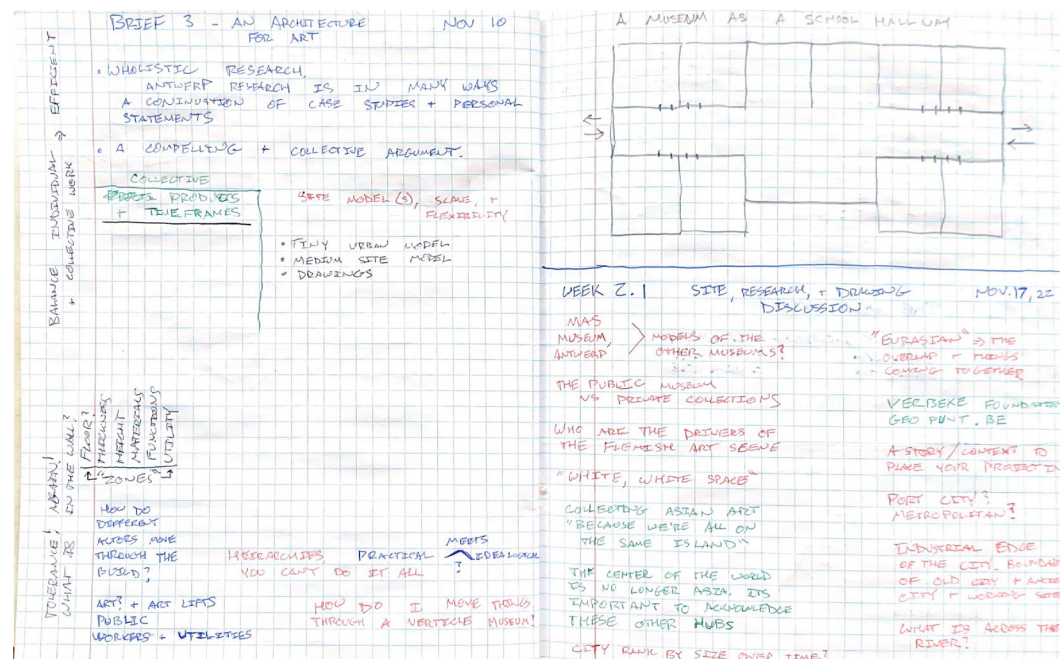 BRIEF 3 - AN ARCHITECTURE NOV 10
FOR ART
• WHOLISTIC RESEARCH.
ANTWERP RESEARCH IS IN MANY WAYS
A CONINUATION OF CASE STUDIES + PERSONAL
STATEMENTS
• A COMPELLING + COLLECTIVE ARGUMENT.
COLLECTIVE
PRODUCTS
+ TIMEFRAMES
SITE MODEL(S), SCALE, +
FLEXIBILITY
• TINY URBAN MODEL
• MEDIUM SITE MODEL
• DRAWINGS
BALANCE INDIVIDUAL → EFFICIENT
+ COLLECTIVE WORK
TOLERANCE! AGAIN!
WHAT IS IN THE WALL?
FLOOR?
THICKNESS
HEIGHT
MATERIALS
FUNCTIONS
UTILITY
"ZONES"
HOW DO
DIFFERENT
ACTORS MOVE
THROUGH THE
BUILD?
HEIRARCHIES
YOU CAN'T DO IT ALL
MEETS
PRACTICAL
?
ART? + ART LIFTS
PUBLIC
WORKERS + UTILITIES
HOW DO I MOVE THINGS
THROUGH A VERTICLE MUSEUM?
A MUSEUM AS A SCHOOL HALLWAY
WEEK 2.1 SITE, RESEARCH, + DRAWING NOV.17, 22
DISCUSSION
MAS
MUSEUM,
ANTWERP
MODELS OF THE
OTHER MUSEUMS?
THE PUBLIC MUSEUM
VS PRIVATE COLLECTIONS
WHO ARE THE DRIVERS OF
THE FLEMISH ART SCENE
"WHITE, WHITE SPACE"
COLLECTING ASIAN ART
"BECAUSE WE'RE ALL ON
THE SAME ISLAND"
THE CENTER OF THE WORLD
IS NO LONGER ASIA. ITS
IMPORTANT TO ACKNOWLEDGE
THESE OTHER HUBS
CITY RANK BY SIZE OVER TIME?
"EURASIAN" → THE
OVERLAP + THINGS
COMING TOGETHER
VERBEKE FOUNDATIO
GEO PUNT.BE
A STORY/CONTEXT TO
PLACE YOUR PROJECT IN
PORT CITY?
METROPOLITAN?
INDUSTRIAL EDGE
OF THE CITY. BOUNDAR
OF OLD CITY +
CITY + WORKING
WHAT IS ACROSS THE
RIVER?